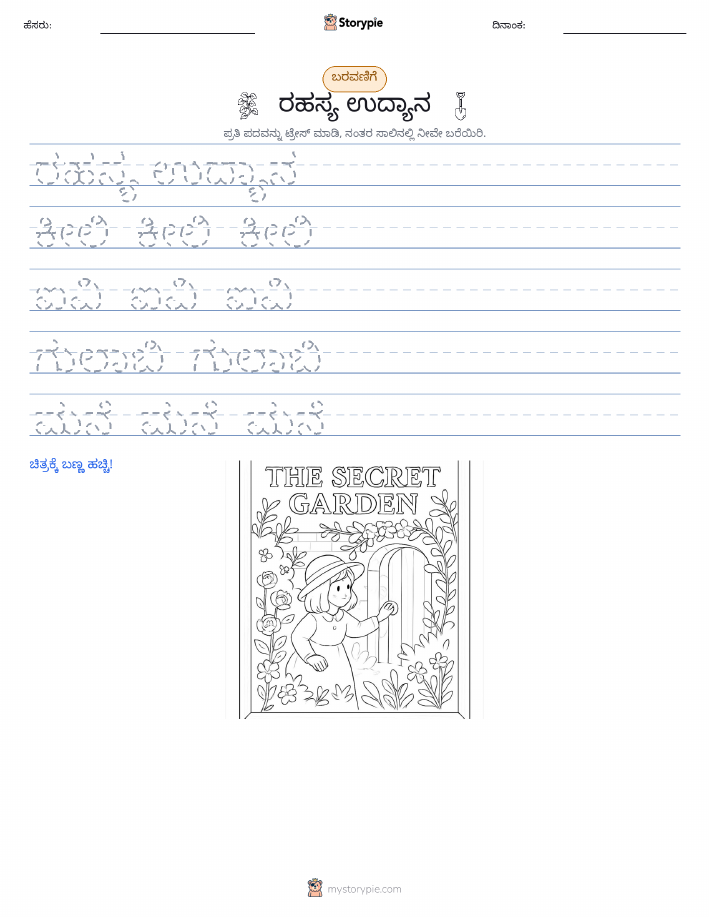 ಹೆಸರು: Storypie ದಿನಾಂಕ:
ಬರವಣಿಗೆ
ರಹಸ್ಯ ಉದ್ಯಾನ
ಪ್ರತಿ ಪದವನ್ನು ಟ್ರೇಸ್ ಮಾಡಿ, ನಂತರ ಸಾಲಿನಲ್ಲಿ ನೀವೇ ಬರೆಯಿರಿ.
ರಹಸ್ಯ ಉದ್ಯಾನ
ಕೀಲಿ ಕೀಲಿ ಕೀಲಿ
ಐವಿ ಐವಿ ಐವಿ
ಗುಲಾಬಿ ಗುಲಾಬಿ
ಮನೆ ಮನೆ ಮನೆ
ಚಿತ್ರಕ್ಕೆ ಬಣ್ಣ ಹಚ್ಚಿ!
THE SECRET
GARDEN
mystorypie.com